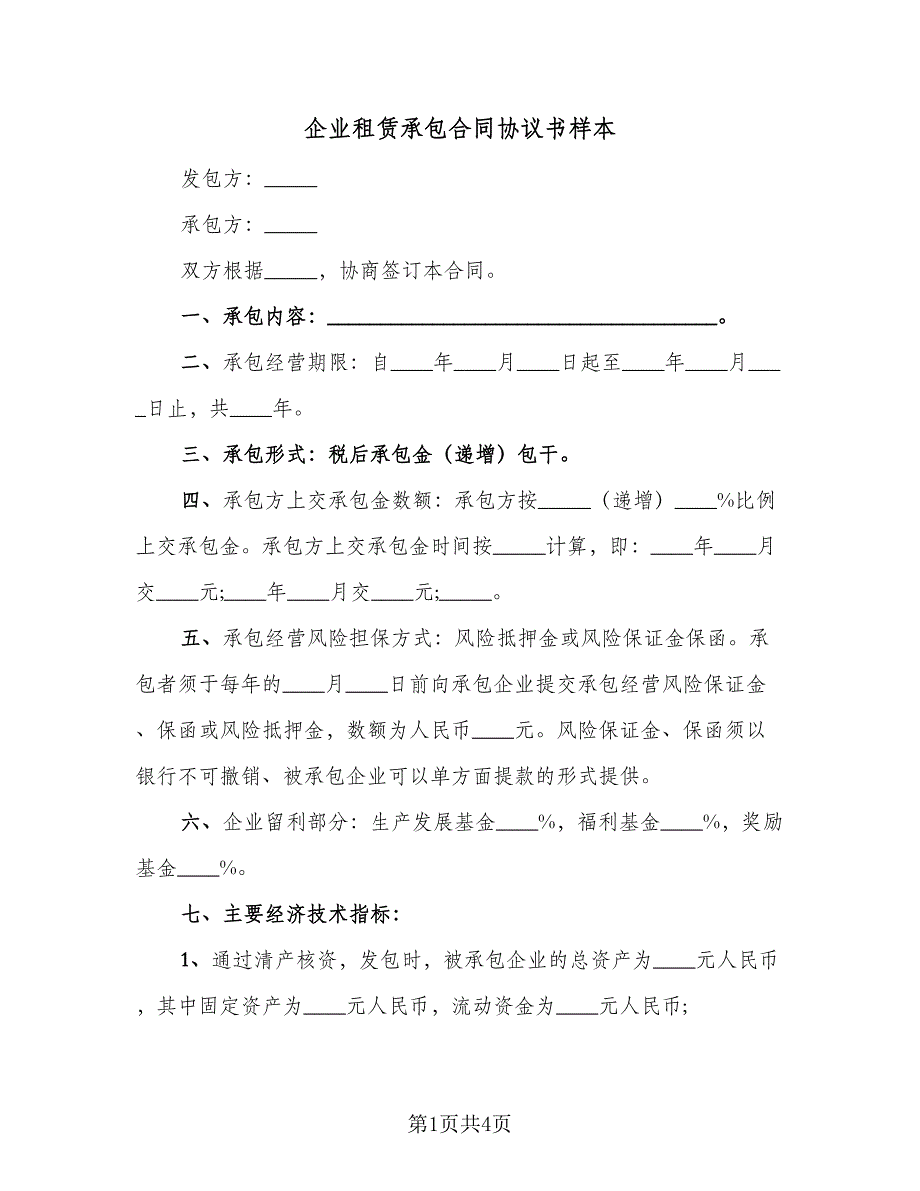 企业租赁承包合同协议书样本
发包方：_____
承包方：_____
双方根据_____，协商签订本合同。
一、承包内容：_____________________________________。
二、承包经营期限：自____年____月____日起至____年____月___
_日止，共____年。
三、承包形式：税后承包金（递增）包干。
四、承包方上交承包金数额：承包方按_____（递增）____%比例
上交承包金。承包方上交承包金时间按_____计算，即：____年____月
交____元;____年____月交____元;_____。
五、承包经营风险担保方式：风险抵押金或风险保证金保函。承
包者须于每年的____月____日前向承包企业提交承包经营风险保证金
、保函或风险抵押金，数额为人民币____元。风险保证金、保函须以
银行不可撤销、被承包企业可以单方面提款的形式提供。
六、企业留利部分：生产发展基金____%，福利基金____%，奖励
基金____%。
七、主要经济技术指标：
1、通过清产核资，发包时，被承包企业的总资产为____元人民币
，其中固定资产为____元人民币，流动资金为____元人民币;
第1页共4页